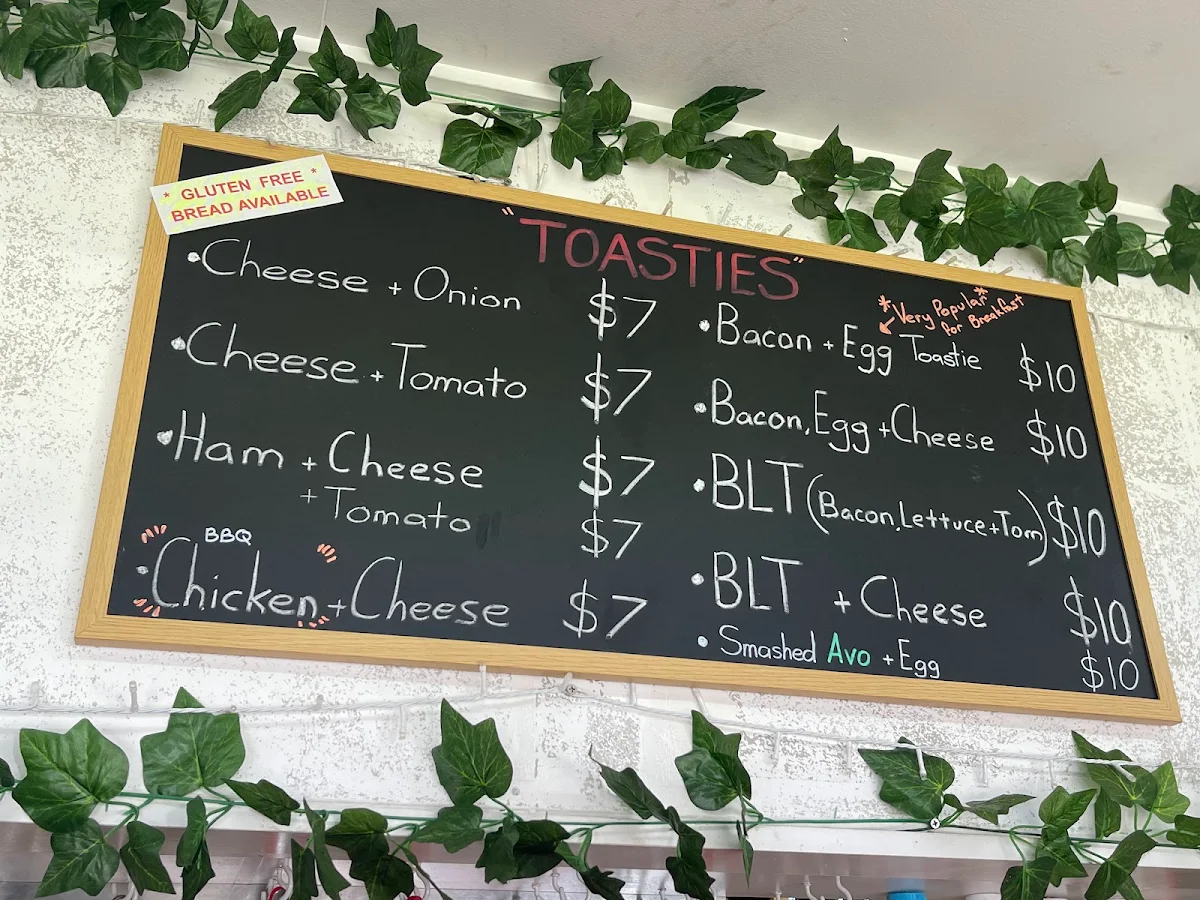 * GLUTEN FREE *
BREAD AVAILABLE
"TOASTIES"
•Cheese + Onion $7
•Cheese + Tomato $7
•Ham + Cheese $7
+ Tomato $7
BBQ
•Chicken + Cheese $7
*Very Popular*
for Breakfast
•Bacon + Egg Toastie $10
•Bacon, Egg + Cheese $10
•BLT (Bacon, Lettuce + Tom) $10
•BLT + Cheese $10
•Smashed Avo + Egg $10